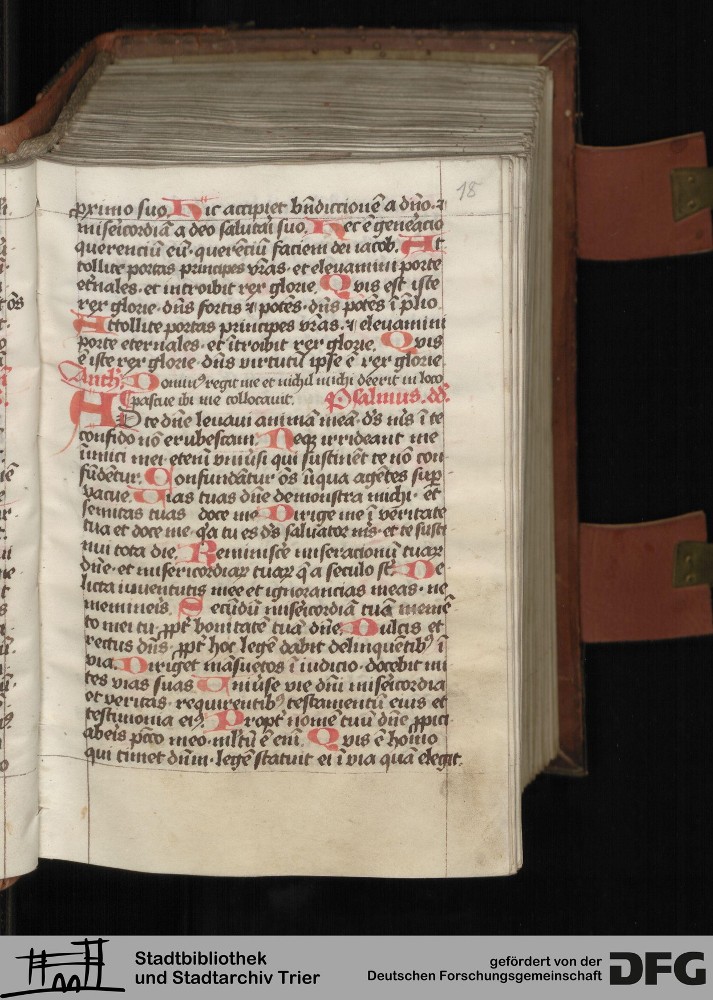 18
pximo suo. Hic accipiet bn̄dictionē a dn̄o· ⁊
misericordiā a deo salutai suo. Hec ē gen̄eacio
querenciū eū· querēciū faciem dei iacob. At
tollite portas principes vr̄as· et eleuamini porte
et̄nales· et introibit rex glorie. Quis est iste
rex glorie· dn̄s fortis ⁊ potēs· dn̄s potēs ī p̄lio
Attollite portas principes vr̄as· ⁊ eleuamini
porte eternales· et ītroibit rex glorie. Quis
ē iste rex glorie· dn̄s virtutū ipse ē rex glorie
Anth̄· Dominꝰ regit me et nichil michi deerit in loco
pascue ibi me collocauit. Psalmus. dd̄.
AD te dn̄e leuaui animā meā· ds̄ ms̄ ī te
confido nō erubescam. Neqꝫ irrideant me
inimici mei· eteni vniūsi qui sustinēt te nō con
fūdētur. Confundātur ōs iīqua agētes supꝑ
vacue. Uias tuas dn̄e demonstra michi· et
semitas tuas doce me. Dirige me ī veritate
tua et doce me· q̄a tu es ds̄ saluator ms̄· et te susti
nui tota die. Reminisce miseracionū tuaꝝ
dn̄e· et misericordiaꝝ tuaꝝ q̄ a seculo st̄. De
licta iuuentutis mee et ignorancias meas· ne
memineis. Secūdū misericordiā tuā memē
to mei tu· ꝓpt̄ bonitatē tuā dn̄e. Dulcis et
rectus dn̄s· ꝓpt̄ hoc legē dabit delinquētibꝰ ī
via. Diriget māsuetos ī iudicio· docebit mi
tes vias suas. Uniūse vie dn̄i misericordia
et veritas· requirentibꝰ testamentū eius et
testimonia eiꝰ. Propt̄ nomē tuū dn̄e ꝓpici
abeis pcc̄o meo· ml̄tū ē eni. Quis ē homo
qui timet dn̄m· legē statuit ei ī via quā elegit.
Stadtbibliothek
und Stadtarchiv Trier
gefördert von der
Deutschen Forschungsgemeinschaft
DFG